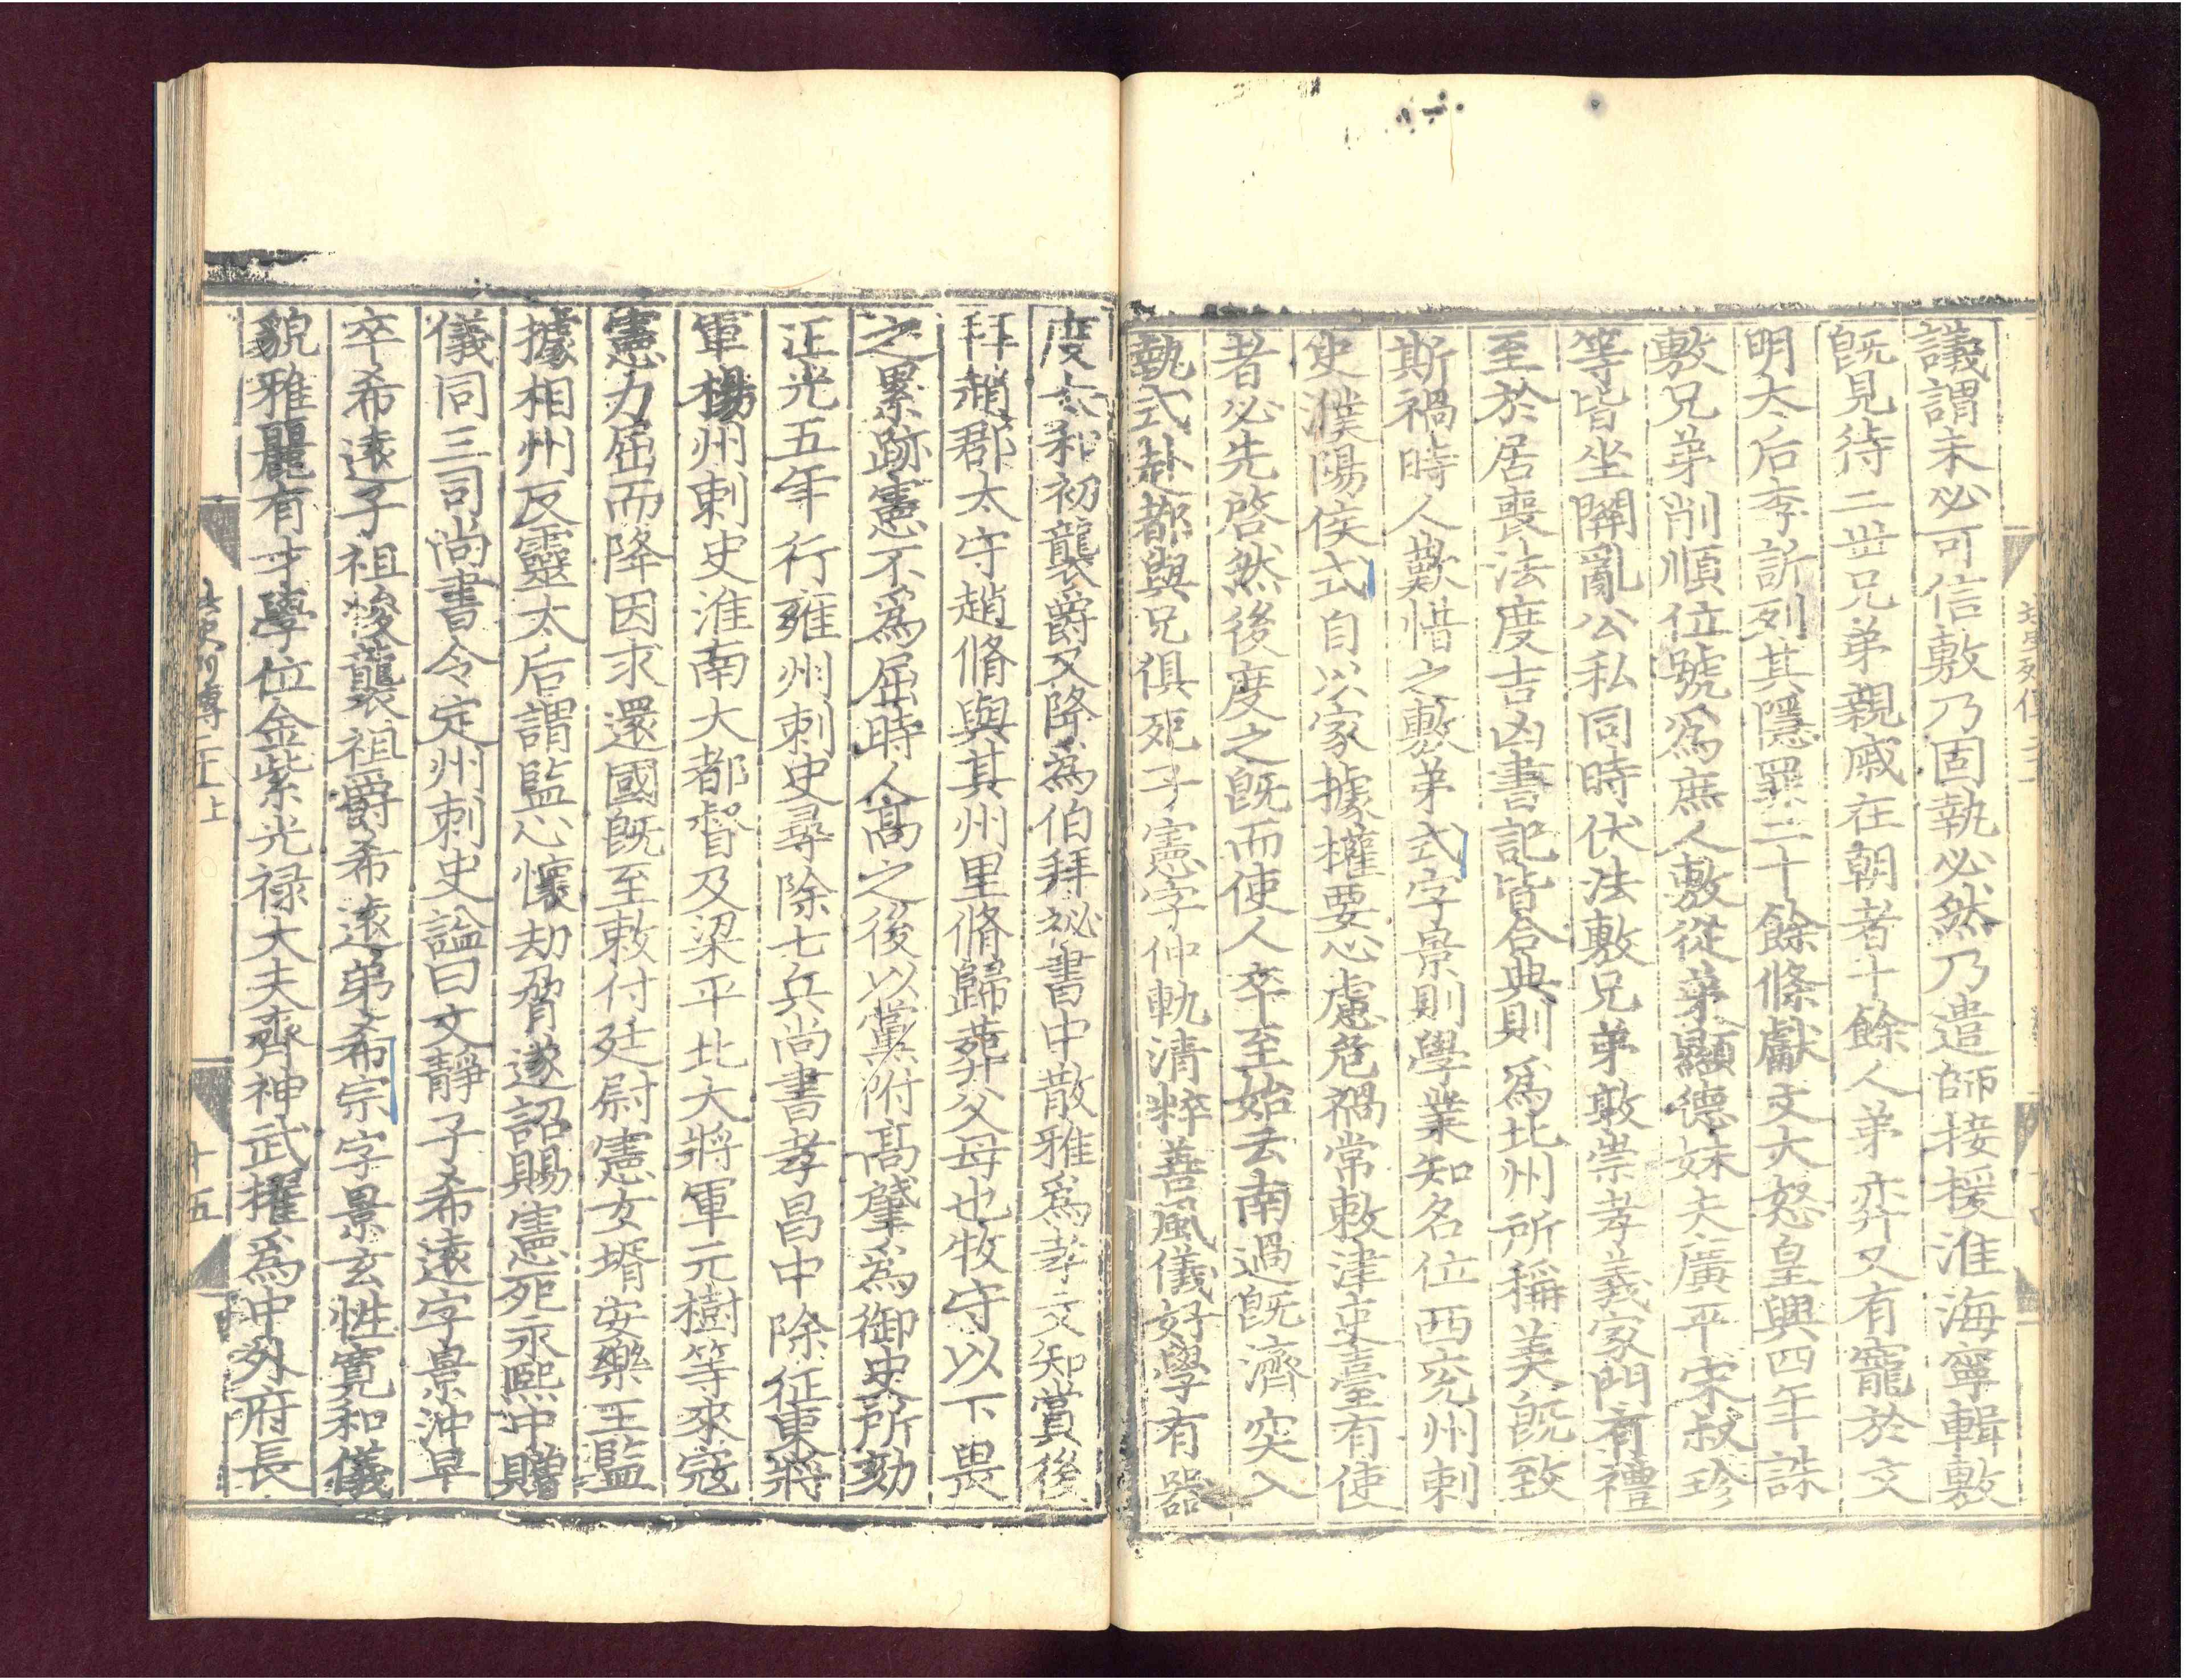 議謂未必可信敷乃固執必然乃遣師接援淮海寧輯敷
旣見待二世兄弟親戚在朝者十餘人弟弈又有寵於文
明太后李訢列其隱罪二十餘條獻文大怒皇興四年誅
敷兄弟削順位號爲庶人敷從弟顯德妹夫廣平宋叔珍
等皆坐關亂公私同時伏法敷兄弟敦崇孝義家門有禮
至於居喪法度吉凶書記皆合典則爲北州所稱美旣致
斯禍時人歎惜之敷弟式字景則學業知名位西兖州刺
史濮陽侯式自以家據權要心慮危禍常敕津吏臺有使
者必先啓然後度之旣而使人卒至始云南過旣濟突入
執式赴都與兄俱死子憲字仲軌清粹善風儀好學有器
度太和初襲爵又降爲伯拜祕書中散雅爲孝文知賞後
拜趙郡太守趙脩與其州里脩歸葬父母也牧守以下畏
之累跡憲不爲屈時人高之後以黨附高肇爲御史所劾
正光五年行雍州刺史尋除七兵尚書孝昌中除征東將
軍楊州刺史淮南大都督及梁平北大將軍元樹等來寇
憲力屈而降因求還國旣至敕付廷尉憲女壻安樂王鑒
據相州反靈太后謂監心懷劫脅遂詔賜憲死永熙中贈
儀同三司尚書令定州刺史諡曰文靜子希遠字景沖早
卒希遠子祖悛襲祖爵希遠弟希宗字景玄性寬和儀
貌雅麗有才學位金紫光禄大夫齊神武擢爲中外府長
北史列傳二十一上
十五